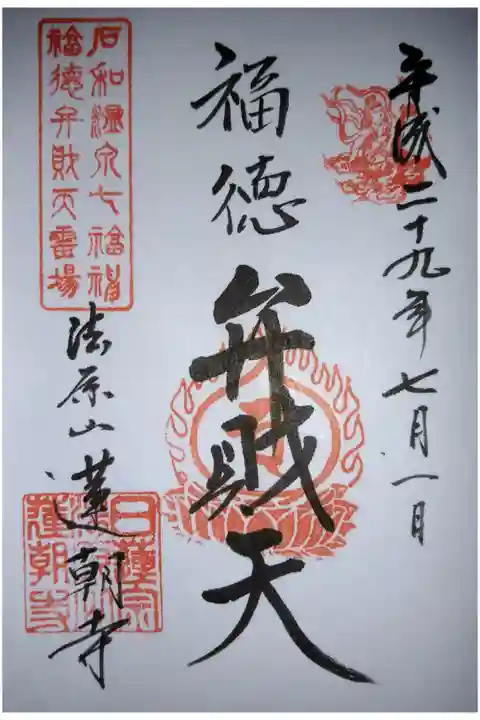 平成二十九年七月一日
福徳
弁賊天
石和温泉七福神
福徳弁財天霊場
法原山蓮朝寺
日蓮宗
蓮朝寺